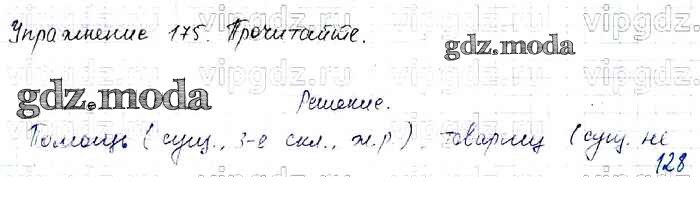 Упражнение 175. Прочитайте.
gdz.moda
gdz.moda
Решение.
Помощь (сущ., 3-е скл., ж.р.), товарищ (сущ. не
128